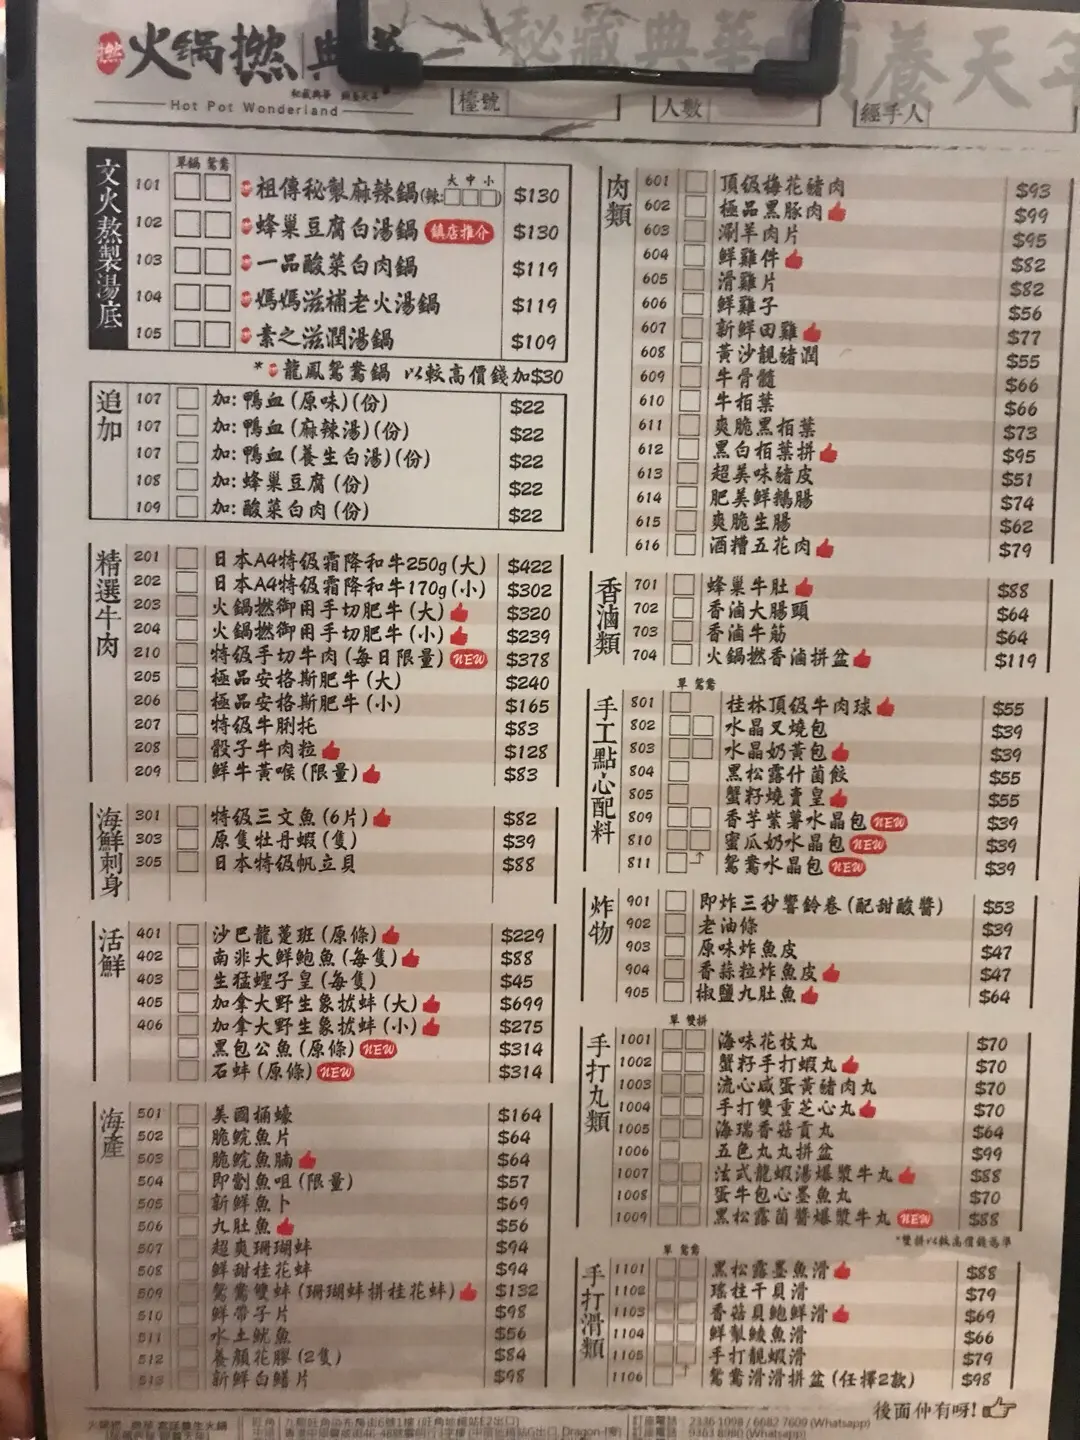 撚 火鍋撚 典華
秘藏典華 頤養天年
Hot Pot Wonderland
秘藏典華 頤養天年
檯號 人數 經手人
文火熬製湯底
單鍋 鴛鴦
101 祖傳秘製麻辣鍋(辣: 大 中 小) $130
102 蜂巢豆腐白湯鍋 鎮店推介 $130
103 一品酸菜白肉鍋 $119
104 媽媽滋補老火湯鍋 $119
105 素之滋潤湯鍋 $109
* 龍鳳鴛鴦鍋 以較高價錢加$30
追加
107 加: 鴨血(原味)(份) $22
107 加: 鴨血(麻辣湯)(份) $22
107 加: 鴨血(養生白湯)(份) $22
108 加: 蜂巢豆腐(份) $22
109 加: 酸菜白肉(份) $22
精選牛肉
201 日本A4特級霜降和牛250g(大) $422
202 日本A4特級霜降和牛170g(小) $302
203 火鍋撚御用手切肥牛(大) $320
204 火鍋撚御用手切肥牛(小) $239
210 特級手切牛肉(每日限量) NEW $378
205 極品安格斯肥牛(大) $240
206 極品安格斯肥牛(小) $165
207 特級牛脷托 $83
208 骰子牛肉粒 $128
209 鮮牛黃喉(限量) $83
海鮮刺身
301 特級三文魚(6片) $82
303 原隻牡丹蝦(隻) $39
305 日本特級帆立貝 $88
活鮮
401 沙巴龍躉班(原條) $229
402 南非大鮮鮑魚(每隻) $88
403 生猛蟶子皇(每隻) $45
405 加拿大野生象拔蚌(大) $699
406 加拿大野生象拔蚌(小) $275
黑包公魚(原條) NEW $314
石蚌(原條) NEW $314
海產
501 美國桶蠔 $164
502 脆鯇魚片 $64
503 脆鯇魚腩 $64
504 即劏魚咀(限量) $57
505 新鮮魚卜 $69
506 九肚魚 $56
507 超爽珊瑚蚌 $94
508 鮮甜桂花蚌 $94
509 鴛鴦雙蚌(珊瑚蚌拼桂花蚌) $132
510 鮮帶子片 $98
511 水土魷魚 $56
512 養顏花膠(2隻) $84
513 新鮮白鱔片 $98
肉類
601 頂級梅花豬肉 $93
602 極品黑豚肉 $99
603 涮羊肉片 $95
604 鮮雞件 $82
605 滑雞片 $82
606 鮮雞子 $56
607 新鮮田雞 $77
608 黃沙靚豬潤 $55
609 牛骨髓 $66
610 牛栢葉 $66
611 爽脆黑栢葉 $73
612 黑白栢葉拼 $95
613 超美味豬皮 $51
614 肥美鮮鵝腸 $74
615 爽脆生腸 $62
616 酒糟五花肉 $79
香滷類
701 蜂巢牛肚 $88
702 香滷大腸頭 $64
703 香滷牛筋 $64
704 火鍋撚香滷拼盆 $119
手工點心配料
單 鴛鴦
801 桂林頂級牛肉球 $55
802 水晶叉燒包 $39
803 水晶奶黃包 $39
804 黑松露什菌餃 $55
805 蟹籽燒賣皇 $55
809 香芋紫薯水晶包 NEW $39
810 蜜瓜奶水晶包 NEW $39
811 鴛鴦水晶包 NEW $39
炸物
901 即炸三秒響鈴卷(配甜酸醬) $53
902 老油條 $39
903 原味炸魚皮 $47
904 香蒜粒炸魚皮 $47
905 椒鹽九肚魚 $64
手打丸類
單 雙拼
1001 海味花枝丸 $70
1002 蟹籽手打蝦丸 $70
1003 流心咸蛋黃豬肉丸 $70
1004 手打雙重芝心丸 $70
1005 海瑞香菇貢丸 $64
1006 五色丸丸拼盆 $99
1007 法式龍蝦湯爆漿牛丸 $88
1008 蛋牛包心墨魚丸 $70
1009 黑松露菌醬爆漿牛丸 NEW $88
*雙拼以較高價錢為準
手打滑類
單 鴛鴦
1101 黑松露墨魚滑 $88
1102 瑤柱干貝滑 $79
1103 香菇貝鮑鮮滑 $69
1104 鮮製鯪魚滑 $66
1105 手打靚蝦滑 $79
1106 鴛鴦滑滑拼盆(任擇2款) $98
後面仲有呀!
訂座電話 2336 1098 / 6682 7609 (Whatsapp)
訂座電話 9363 8980 (Whatsapp)